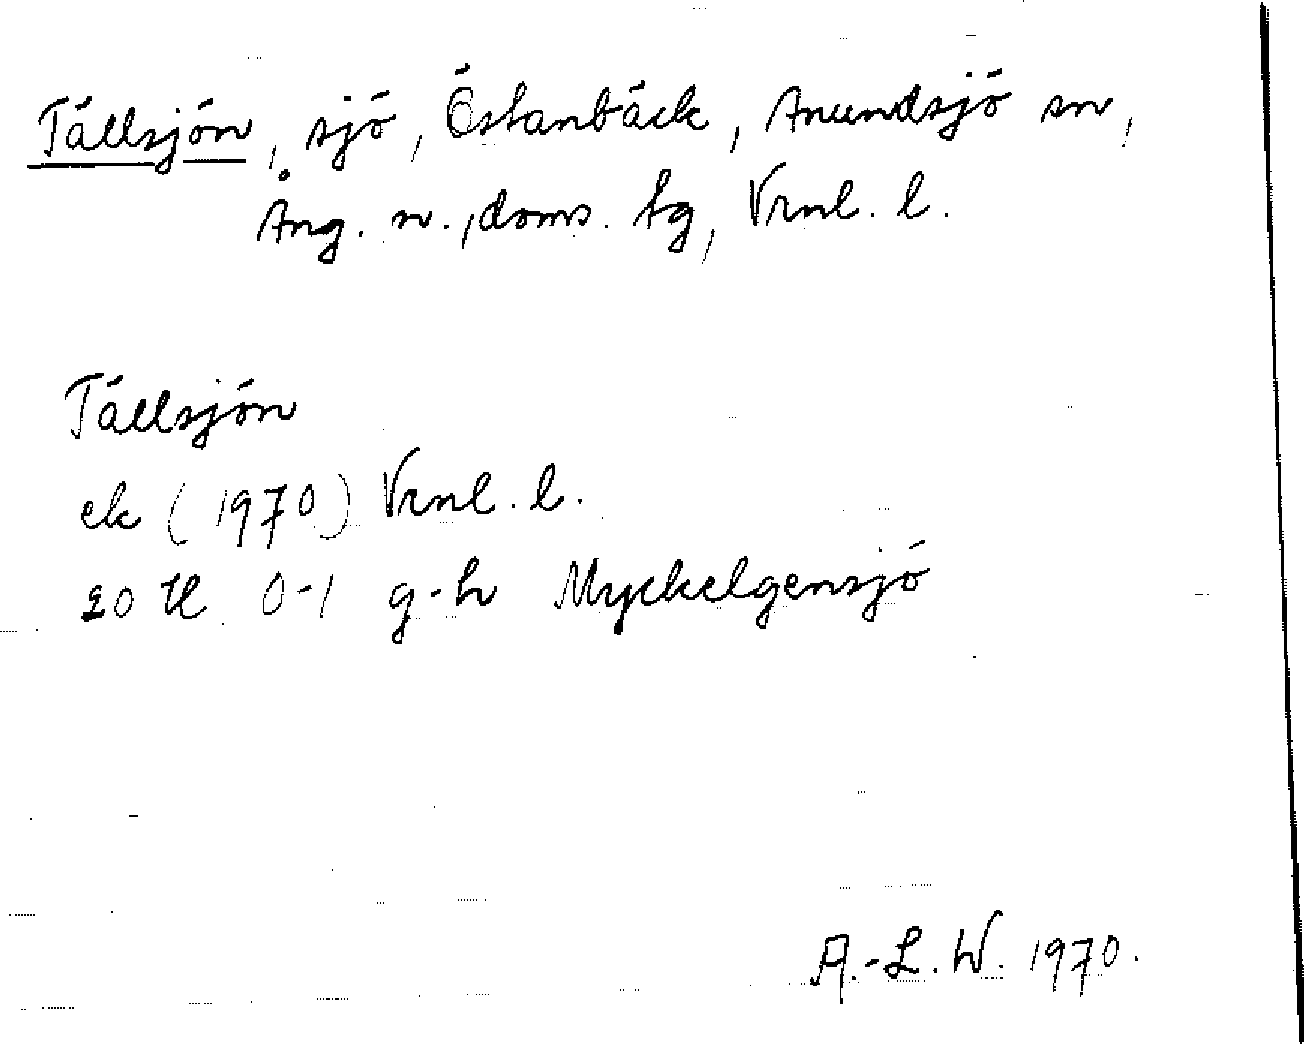 Tällsjön, sjö, Östanbäck, Anundsjö sn,
Ång. n., doms. tg, Vrnl. l.
Tällsjön
ek (1970) Vrnl. l.
20 H 0-1 g-h Myckelgensjö
A.-L. W. 1970.